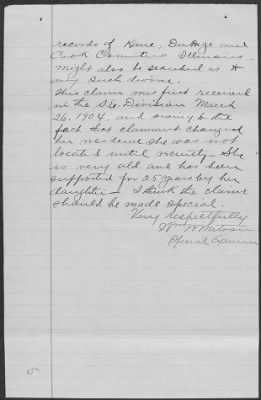 records of Kane, DuPage and
Cook Counties Illinois.
might also be searched as to
any such divorce.
This claim was first received
in the S.E. Division March
26, 1904, and owing to the
fact that claimant changed
her residence she was not
located until recently. She
is very old and has been
supported for 25 years by her
daughter – I think the claim
should be made special.
Very respectfully
Wm
Special Examiner